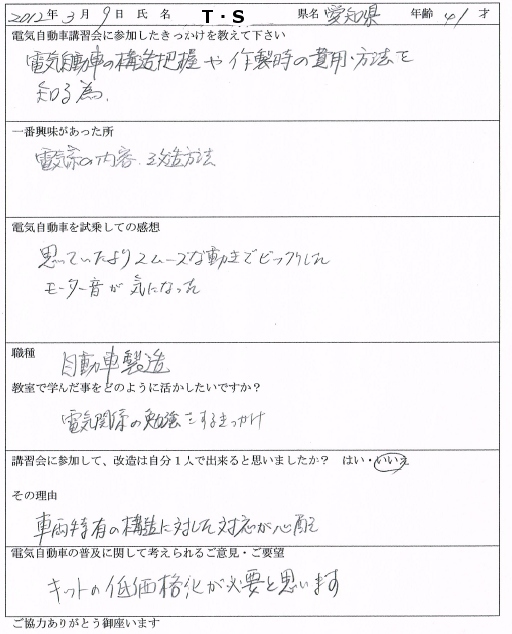 2012年3月9日 氏名 T・S 県名 愛知県 年齢 41才
電気自動車講習会に参加したきっかけを教えて下さい
電気自動車の構造把握や作製時の費用・方法を
知る為.
一番興味があった所
電気系の内容、改造方法
電気自動車を試乗しての感想
思っていたよりスムーズな動きでビックリした
モーター音が気になった
職種
自動車製造
教室で学んだ事をどのように活かしたいですか?
電気関係の勉強をするきっかけ
講習会に参加して、改造は自分1人で出来ると思いましたか? はい・いいえ
その理由
車両特有の構造に対した対応が心配
電気自動車の普及に関して考えられるご意見・ご要望
キットの低価格化が必要と思います
ご協力ありがとう御座います